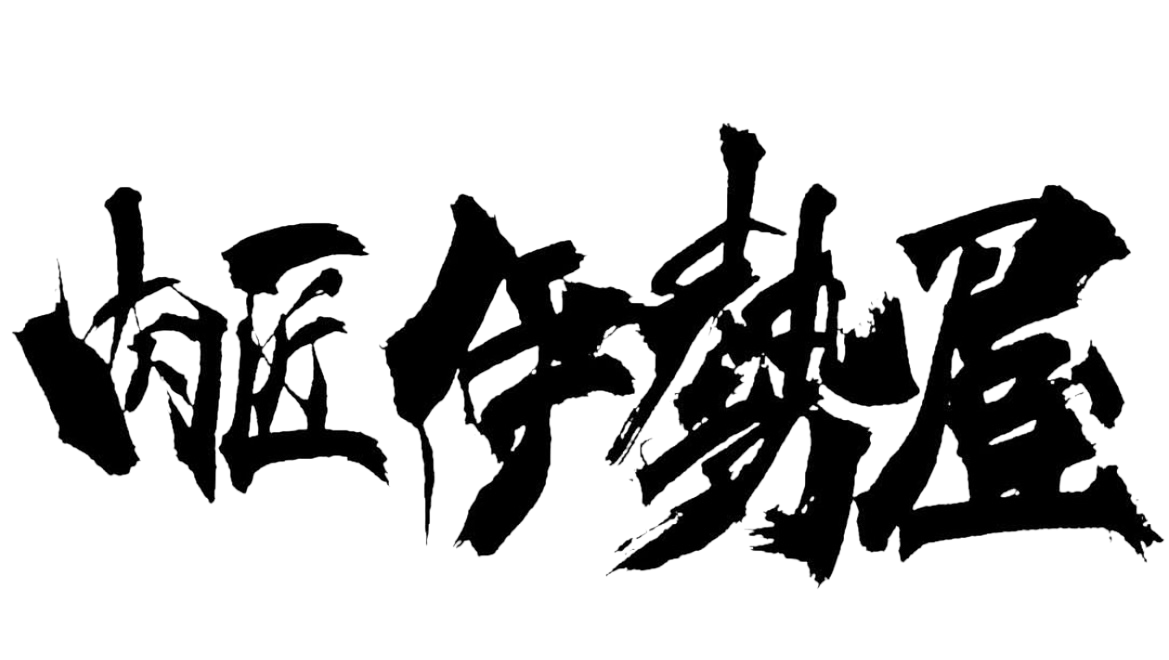 肉匠 伊勢屋